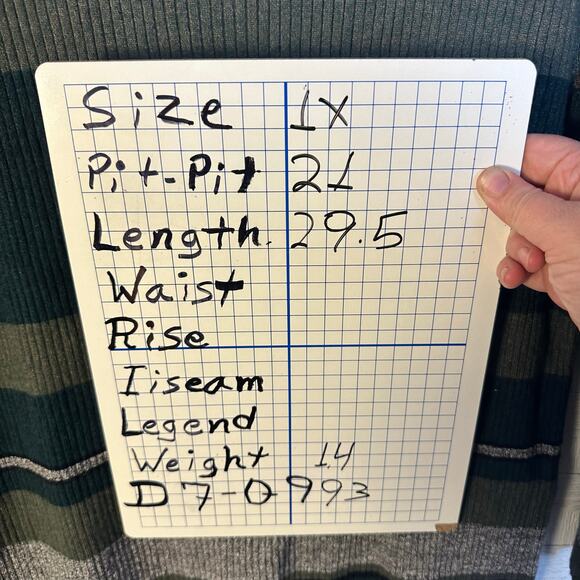 Size 1X
Pit-Pit 21
Length. 29.5
Waist
Rise
Iiseam
Legend
Weight 14
D7-0993